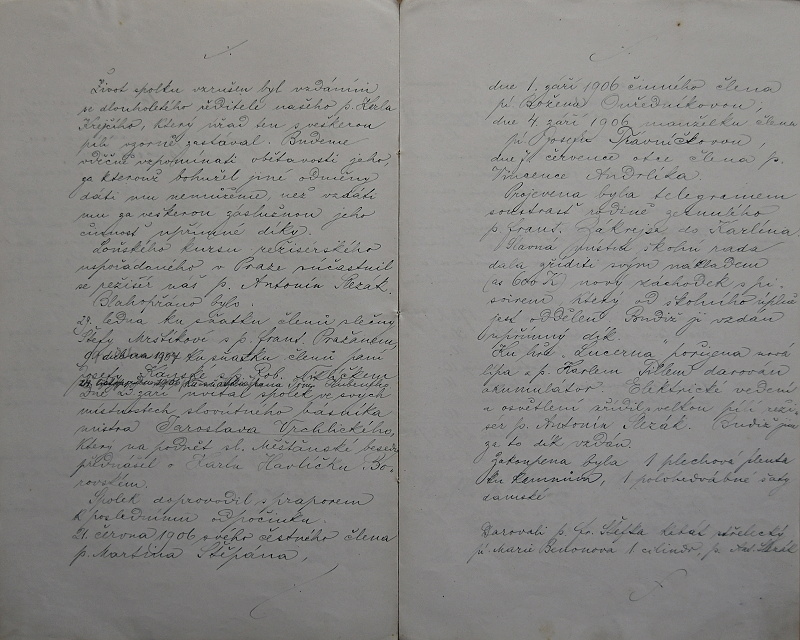 Život spolku vzrušen byl vzdáním
se dlouholetého ředitele našeho p. Karla
Krejčího, který úřad ten s veškerou
pílí vzorně zastával. Budeme
vděčně vzpomínati obětavosti jeho,
za kterouž bohužel jiné odměny
dáti mu nemůžeme, než vzdáti
mu za veškerou záslužnou jeho
činnost upřímné díky.
Loňského kursu režiserského
uspořádaného v Praze súčastnil
se režisér náš p. Antonín Slezák.
Blahopřáno bylo:
29. ledna ku sňatku členů slečny
Štefy Mrštíkove s p. Frant. Pražanem,
9. dubna 1907 ku sňatku členů paní
Josefy s p. Rob.
24. listopadu 1906 ku sňatku pana
Dne 25. září uvítal spolek ve svých
místnostech slovutného básníka
mistra Jaroslava Vrchlického,
který na podnět sl. Měšťanské besedy
přednášel o Karlu Havlíčku Bo-
rovském.
Spolek doprovodil s praporem
k poslednímu odpočinku:
21. června 1906 svého čestného člena
p. Martina Štěpána,
dne 1. září 1906 činného člena
pí. Boženu Ouředníkovou,
dne 4. září 1906 manželku člena
pí Josefu Trávníčkovou,
dne července otce člena p.
Vincence Andrlíka.
Projevena byla telegramem
soustrast rodině zemřelého
p. Frant. Zákrejse do Karlína
Slavná místní školní rada
dala zříditi svým nákladem
(as 600 K) nový záchodek s pi-
soirem, který od školního úplně
jest oddělen. Budiž jí vzdán
upřímný dík.
Ku hře "Lucerna" pořízena nová
lípa a p. Karlem Tillem darován
akumulátor. Elektrické vedení
a osvětlení zřídil s velkou pílí reži-
ser p. Antonín Slezák. Budiž jim
za to dík vzdán.
Zakoupena byla 1 plechová plenta
ku kamnům, 1 polohedvábné šaty
damské
Darovali p. Fr. Štefka kabát střelecký
pí. Marie 1 cilindr, p. Ant. Slezák